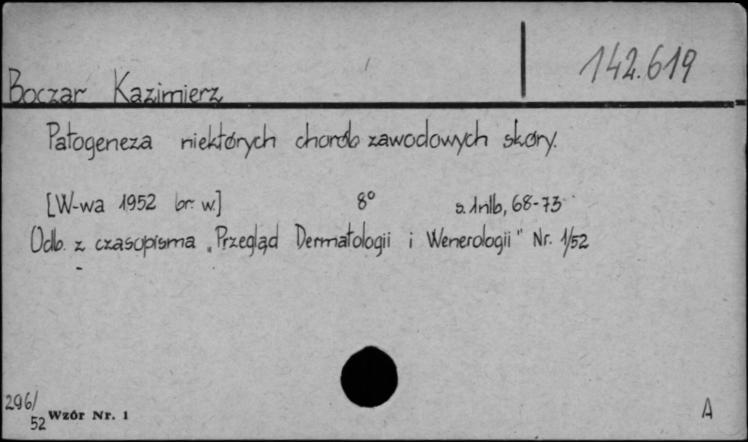 142.619
Boczar Kazimierz
Patogeneza niektórych chorób zawodowych skóry.
[W-wa 1952 br. w.] 8° s. 1nlb, 68-73
Odb. z czasopisma „Przegląd Dermatologii i Wenerologii" Nr. 1/52
296/
52 Wzór Nr. 1 A